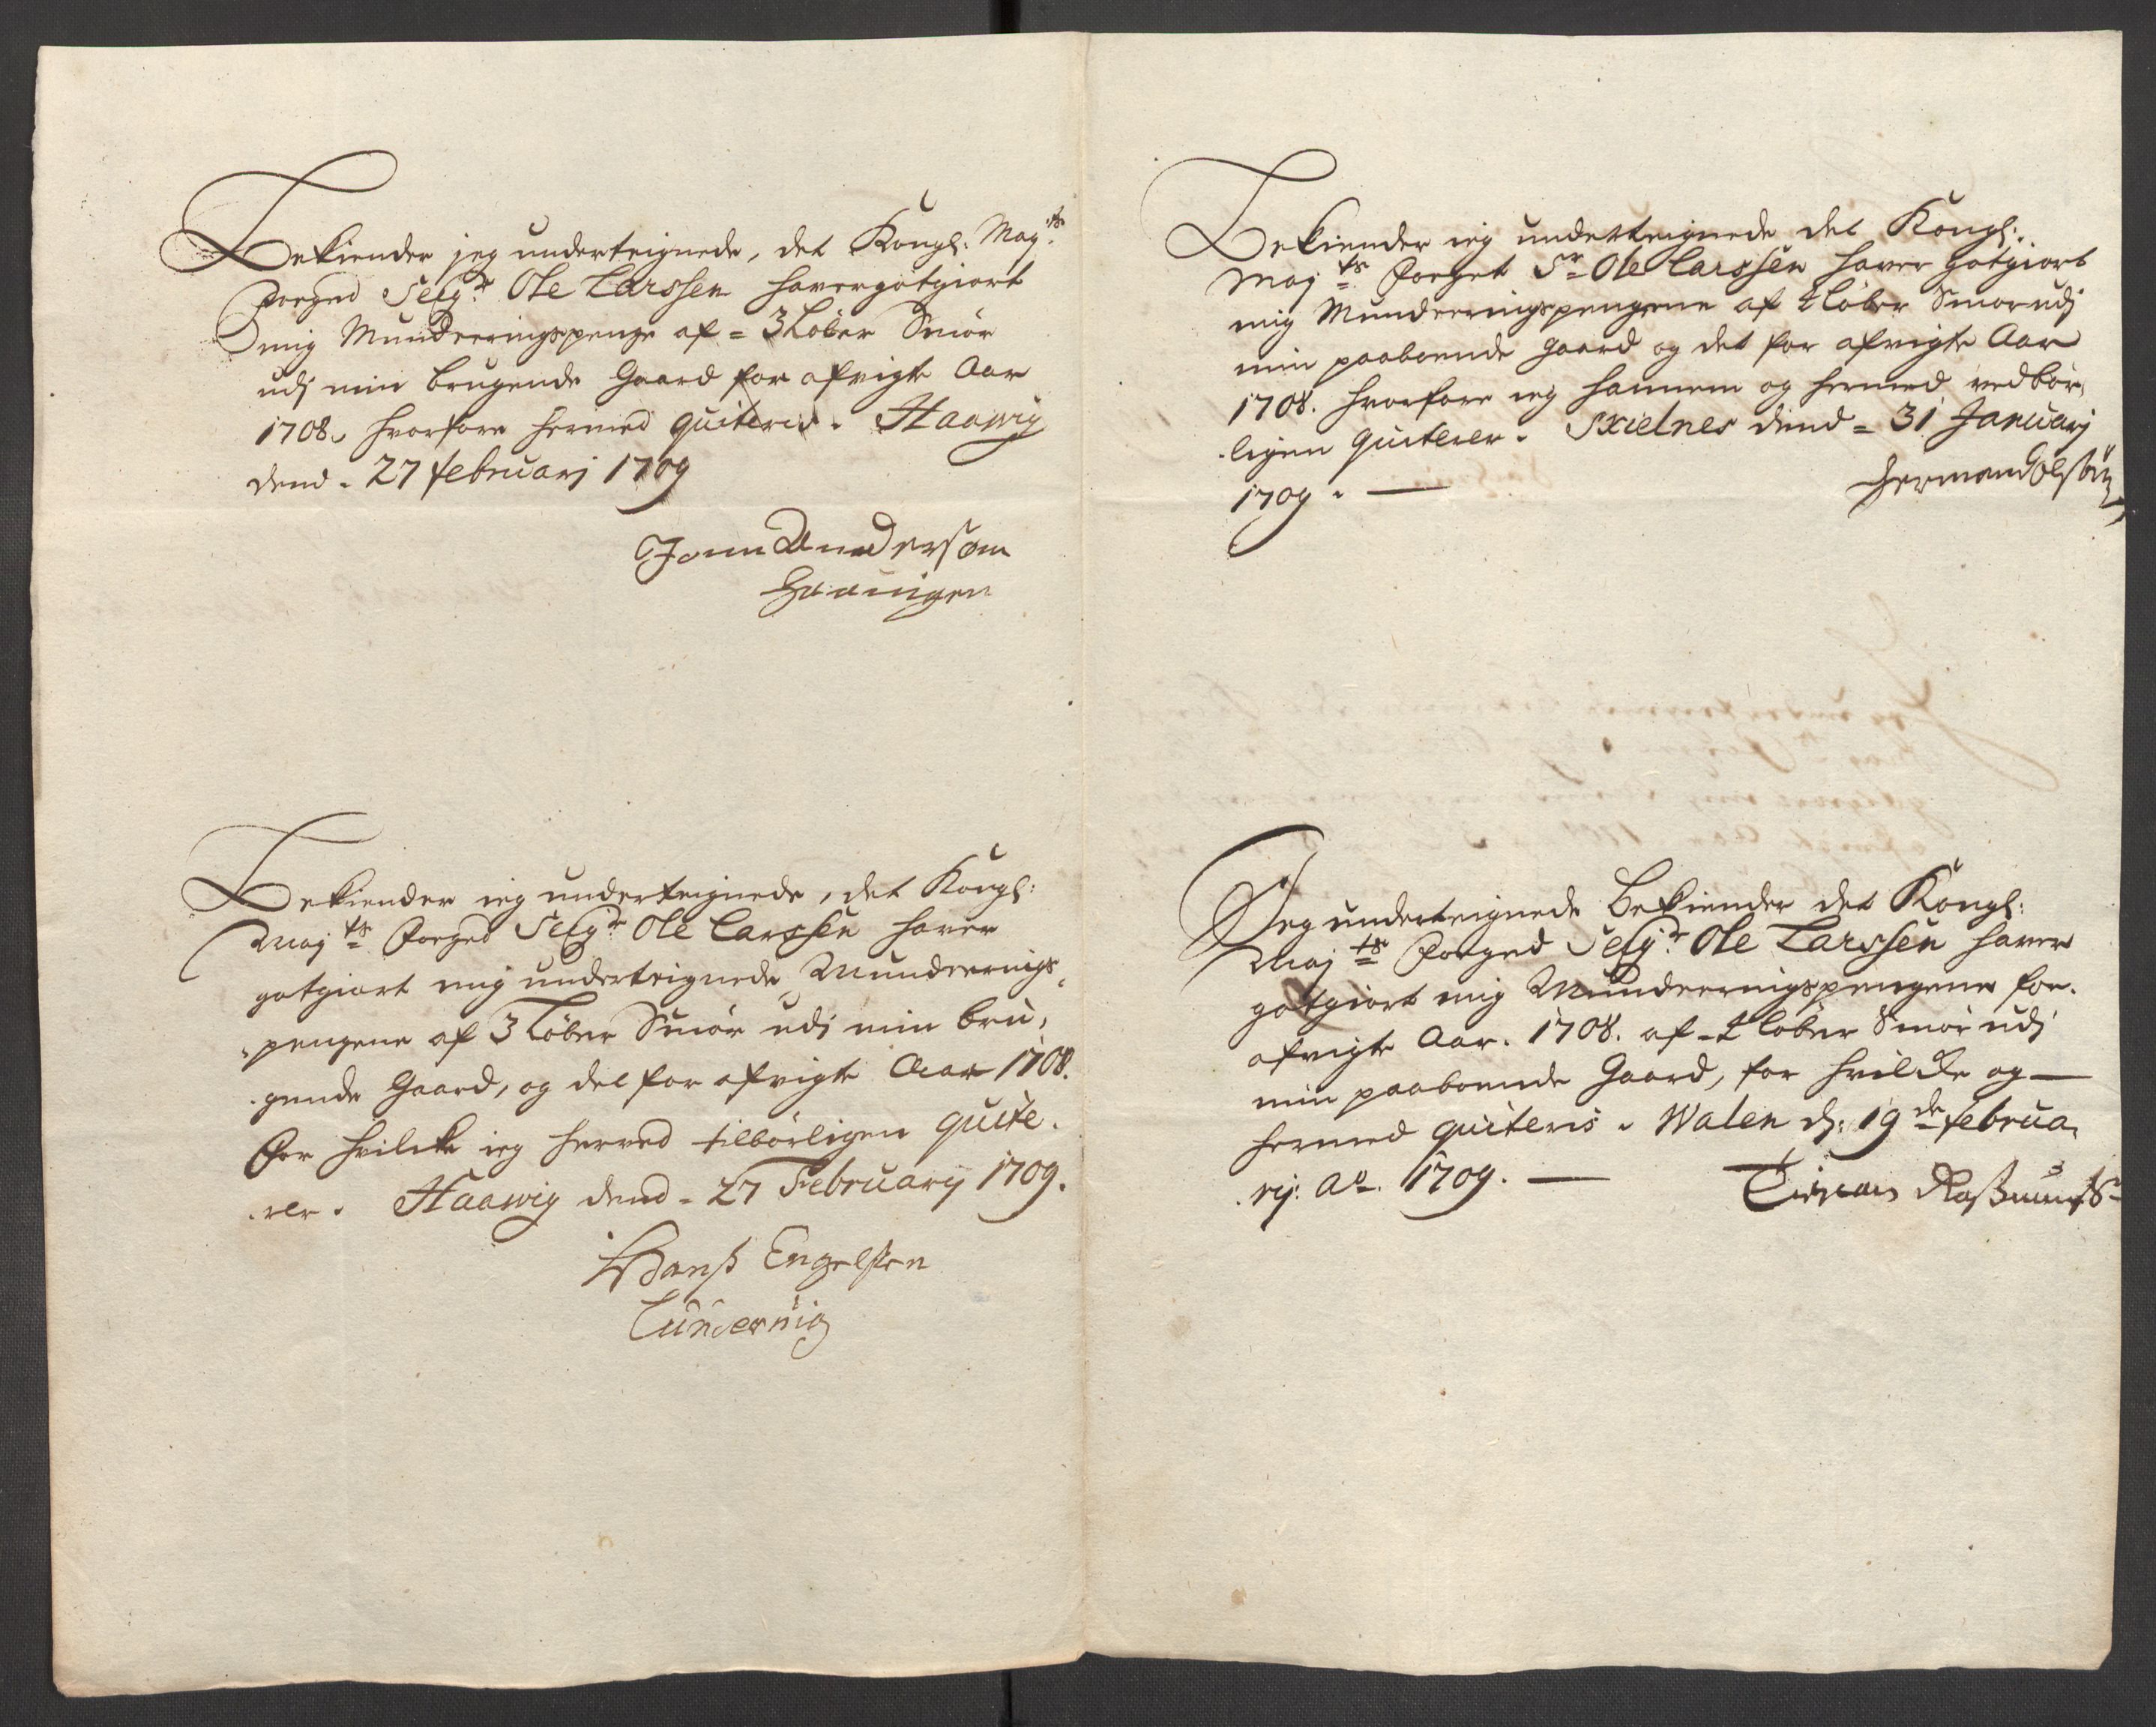 Bekiender jeg underteignede, det Kongl: May:ts
Foeged Seigr Ole Larssen haver gotgiort
mig Munderingspenge af = 3 Løber Smör
udj min brugende Gaard for afvigte Aar
1708. hvorfore hermed quiteris. Haawig
dend. 27 februarj 1709
Jonn Andersøn
Haauigen
Bekiender ieg underteignede, det Kongl:
Majts Foeged Seigr Ole Larssen haver
gotgiort mig underteignede Munderings-
pengene af 3 Løber Smör udj min bru-
gende Gaard, og det for afvigte Aar 1708.
For hvilcke ieg herved tilbörligen quite-
rer. Haawig dend = 27 February 1709.
Hanß Engelsen
Lundervig
Bekiender ieg underteignede det Kongl:
Majts Foeget Sr Ole Larssen haver gotgiort
mig Munderingspengene af Løber Smör udj
min paaboende gaard og det for afvigte Aar
1708. hvorfore ieg hannem og hermed vedbör-
ligen quiterer. Skielnes dend = 31 Januarj
1709. —
Herman Olsøn
Jeg underteignede Bekiender det Kongl:
Majts Foeged Seigr Ole Larssen haver
gotgiort mig Munderingspengene for
afvigte Aar. 1708. af Løber Smör udj
min paaboende Gaard, for hvilcke og —
hermed quiteris. Walen d: 19de februa-
rij: Ao. 1709. —
Raßmuß